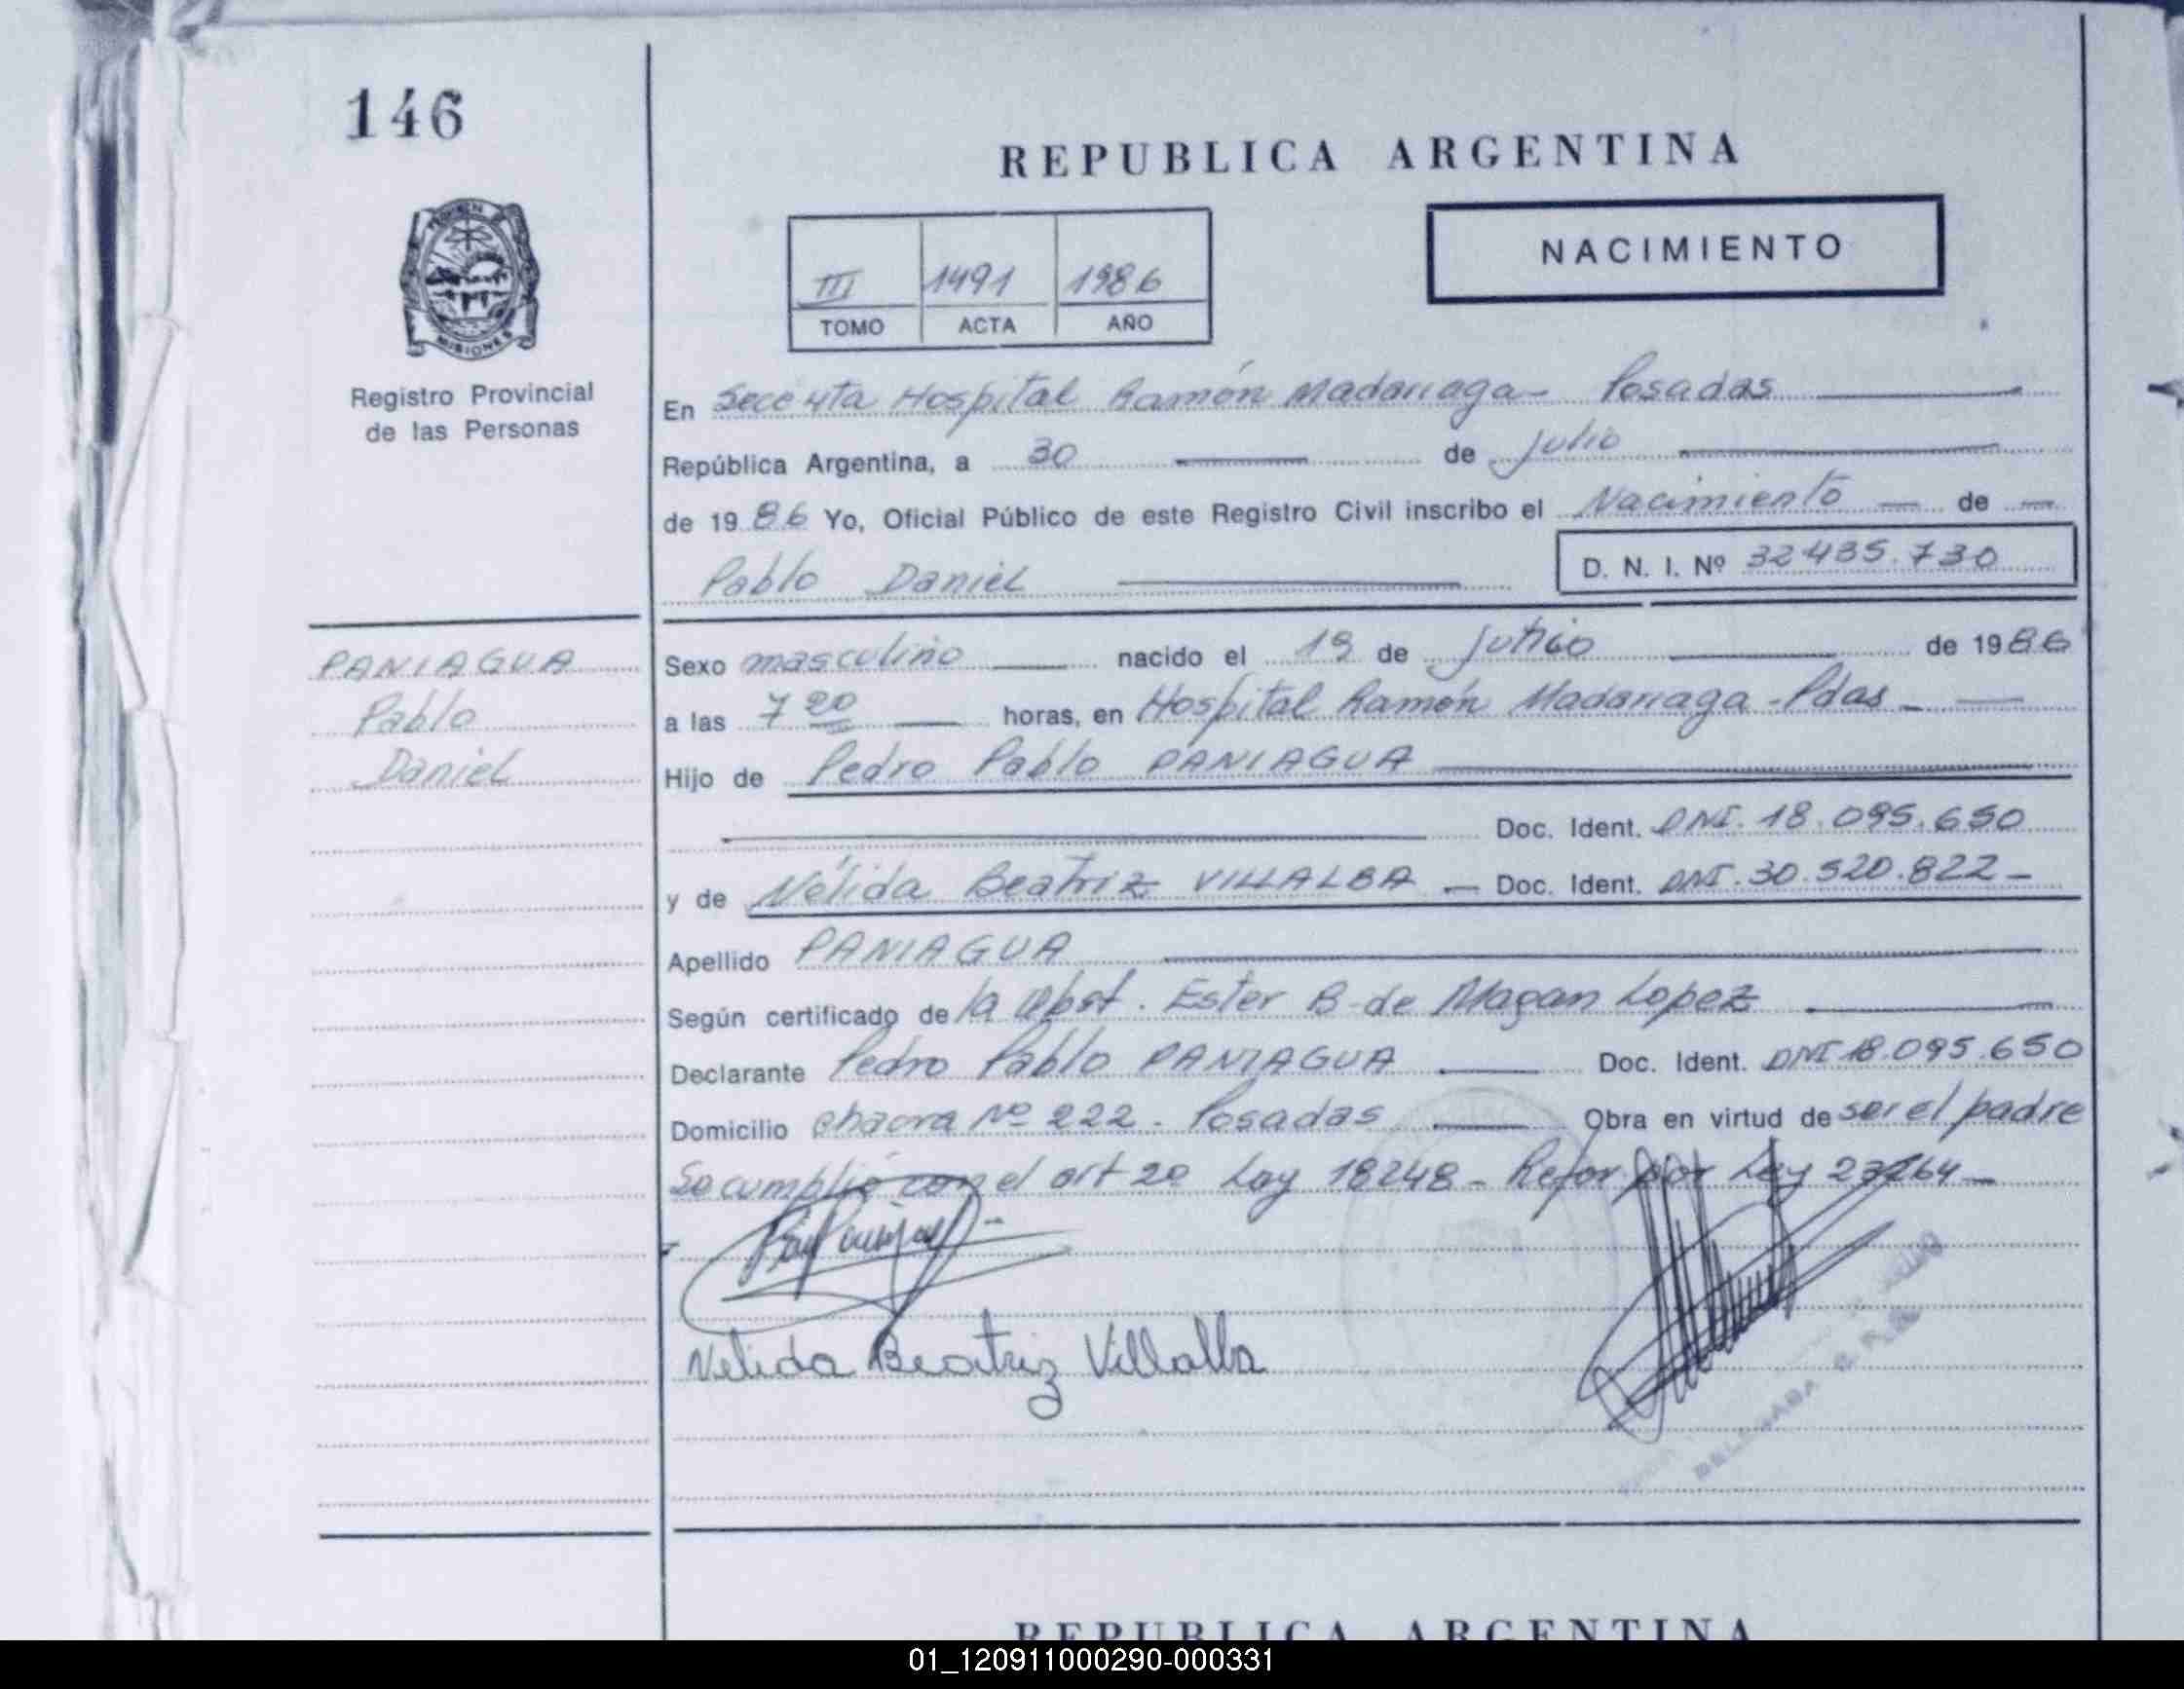 146
REPUBLICA ARGENTINA
NACIMIENTO
III 1491 1986
TOMO ACTA AÑO
MISIONES
Registro Provincial
de las Personas
En Secc 4ta Hospital Ramón Madariaga - Posadas
República Argentina, a 30 de julio
de 1986 Yo, Oficial Público de este Registro Civil inscribo el Nacimiento de
Pablo Daniel D. N. I. Nº 32435.730
PANIAGUA
Pablo
Daniel
Sexo masculino nacido el 19 de de 1986
a las 7 20 horas, en Hospital Ramón Madariaga - Pdas -
Hijo de Pedro Pablo PANIAGUA
Doc. Ident. DNI. 18.095.650
y de Nélida Beatriz VILLALBA - Doc. Ident. DNI. 30.520.822 -
Apellido PANIAGUA
Según certificado de la obst. Ester B de Magan Lopez
Declarante Pedro Pablo PANIAGUA Doc. Ident. DNI 18.095.650
Domicilio chacra Nº 222 - Posadas Obra en virtud de ser el padre
Se cumplió con el art 2º Ley 18248 - Refor por Ley
Nelida Beatriz Villalba
DELEGADA
REPUBLICA ARGENTINA
01_120911000290-000331